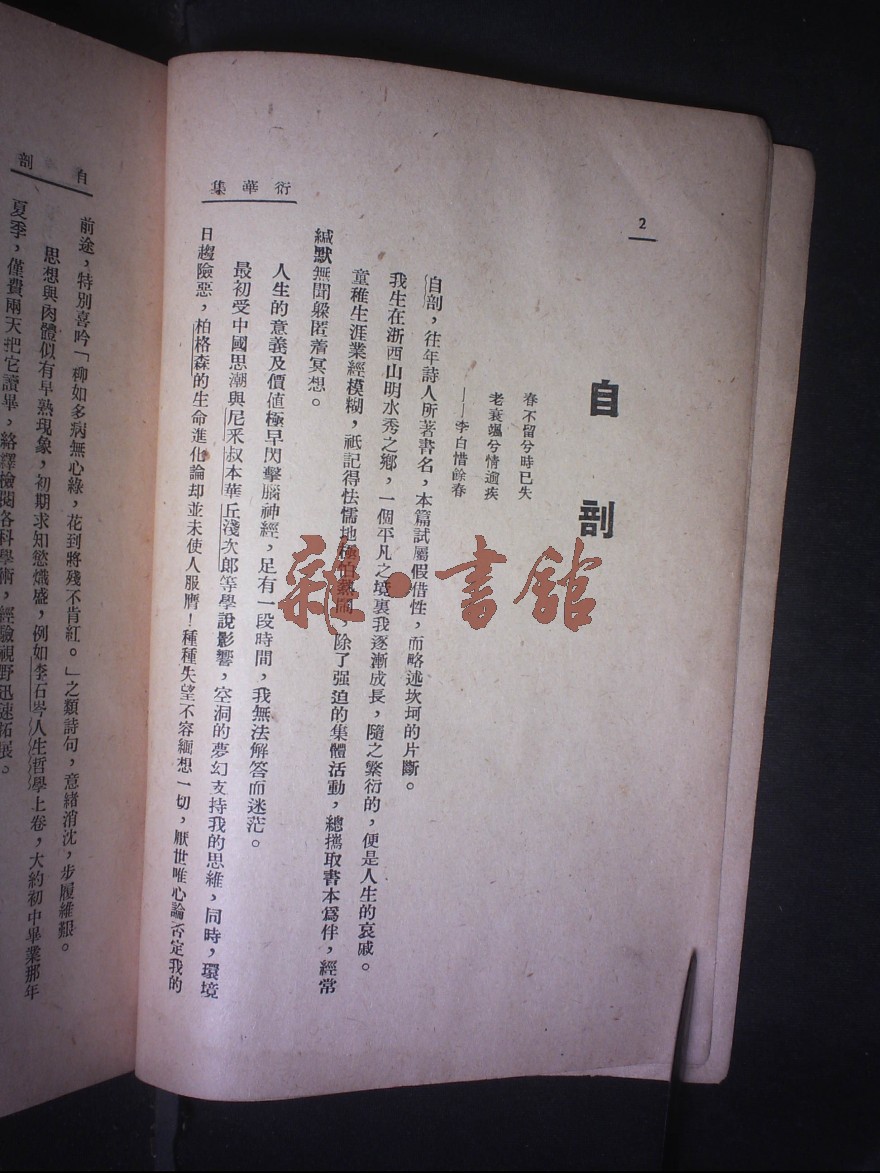 2
衍華集
自剖
春不留兮時已失
老衰颯兮情逾疾
——李白惜餘春
自剖,往年詩人所著書名,本篇試屬假借性,而略述坎坷的片斷。
我生在浙西山明水秀之鄉,一個平凡之境裏我逐漸成長,隨之繁衍的,便是人生的哀戚。
童稚生涯業經模糊,祇記得怯懦地極怕熱鬧,除了强迫的集體活動,總攜取書本爲伴,經常
緘默無聞躲匿着冥想。
人生的意義及價値極早閃擊腦神經,足有一段時間,我無法解答而迷茫。
最初受中國思潮與尼釆叔本華丘淺次郎等學說影響,空洞的夢幻支持我的思維,同時,環境
日趨險惡,柏格森的生命進化論却並未使人服膺!種種失望不容緬想一切,厭世唯心論否定我的
自剖
前途,特別喜吟「柳如多病無心綠,花到將殘不肯紅。」之類詩句,意緒消沈,步履維艱。
思想與肉體似有早熟現象,初期求知慾熾盛,例如李石岑人生哲學上卷,大約初中畢業那年
夏季,僅費兩天把它讀畢,絡繹檢閱各科學術,經驗視野迅速拓展。
雜·書館